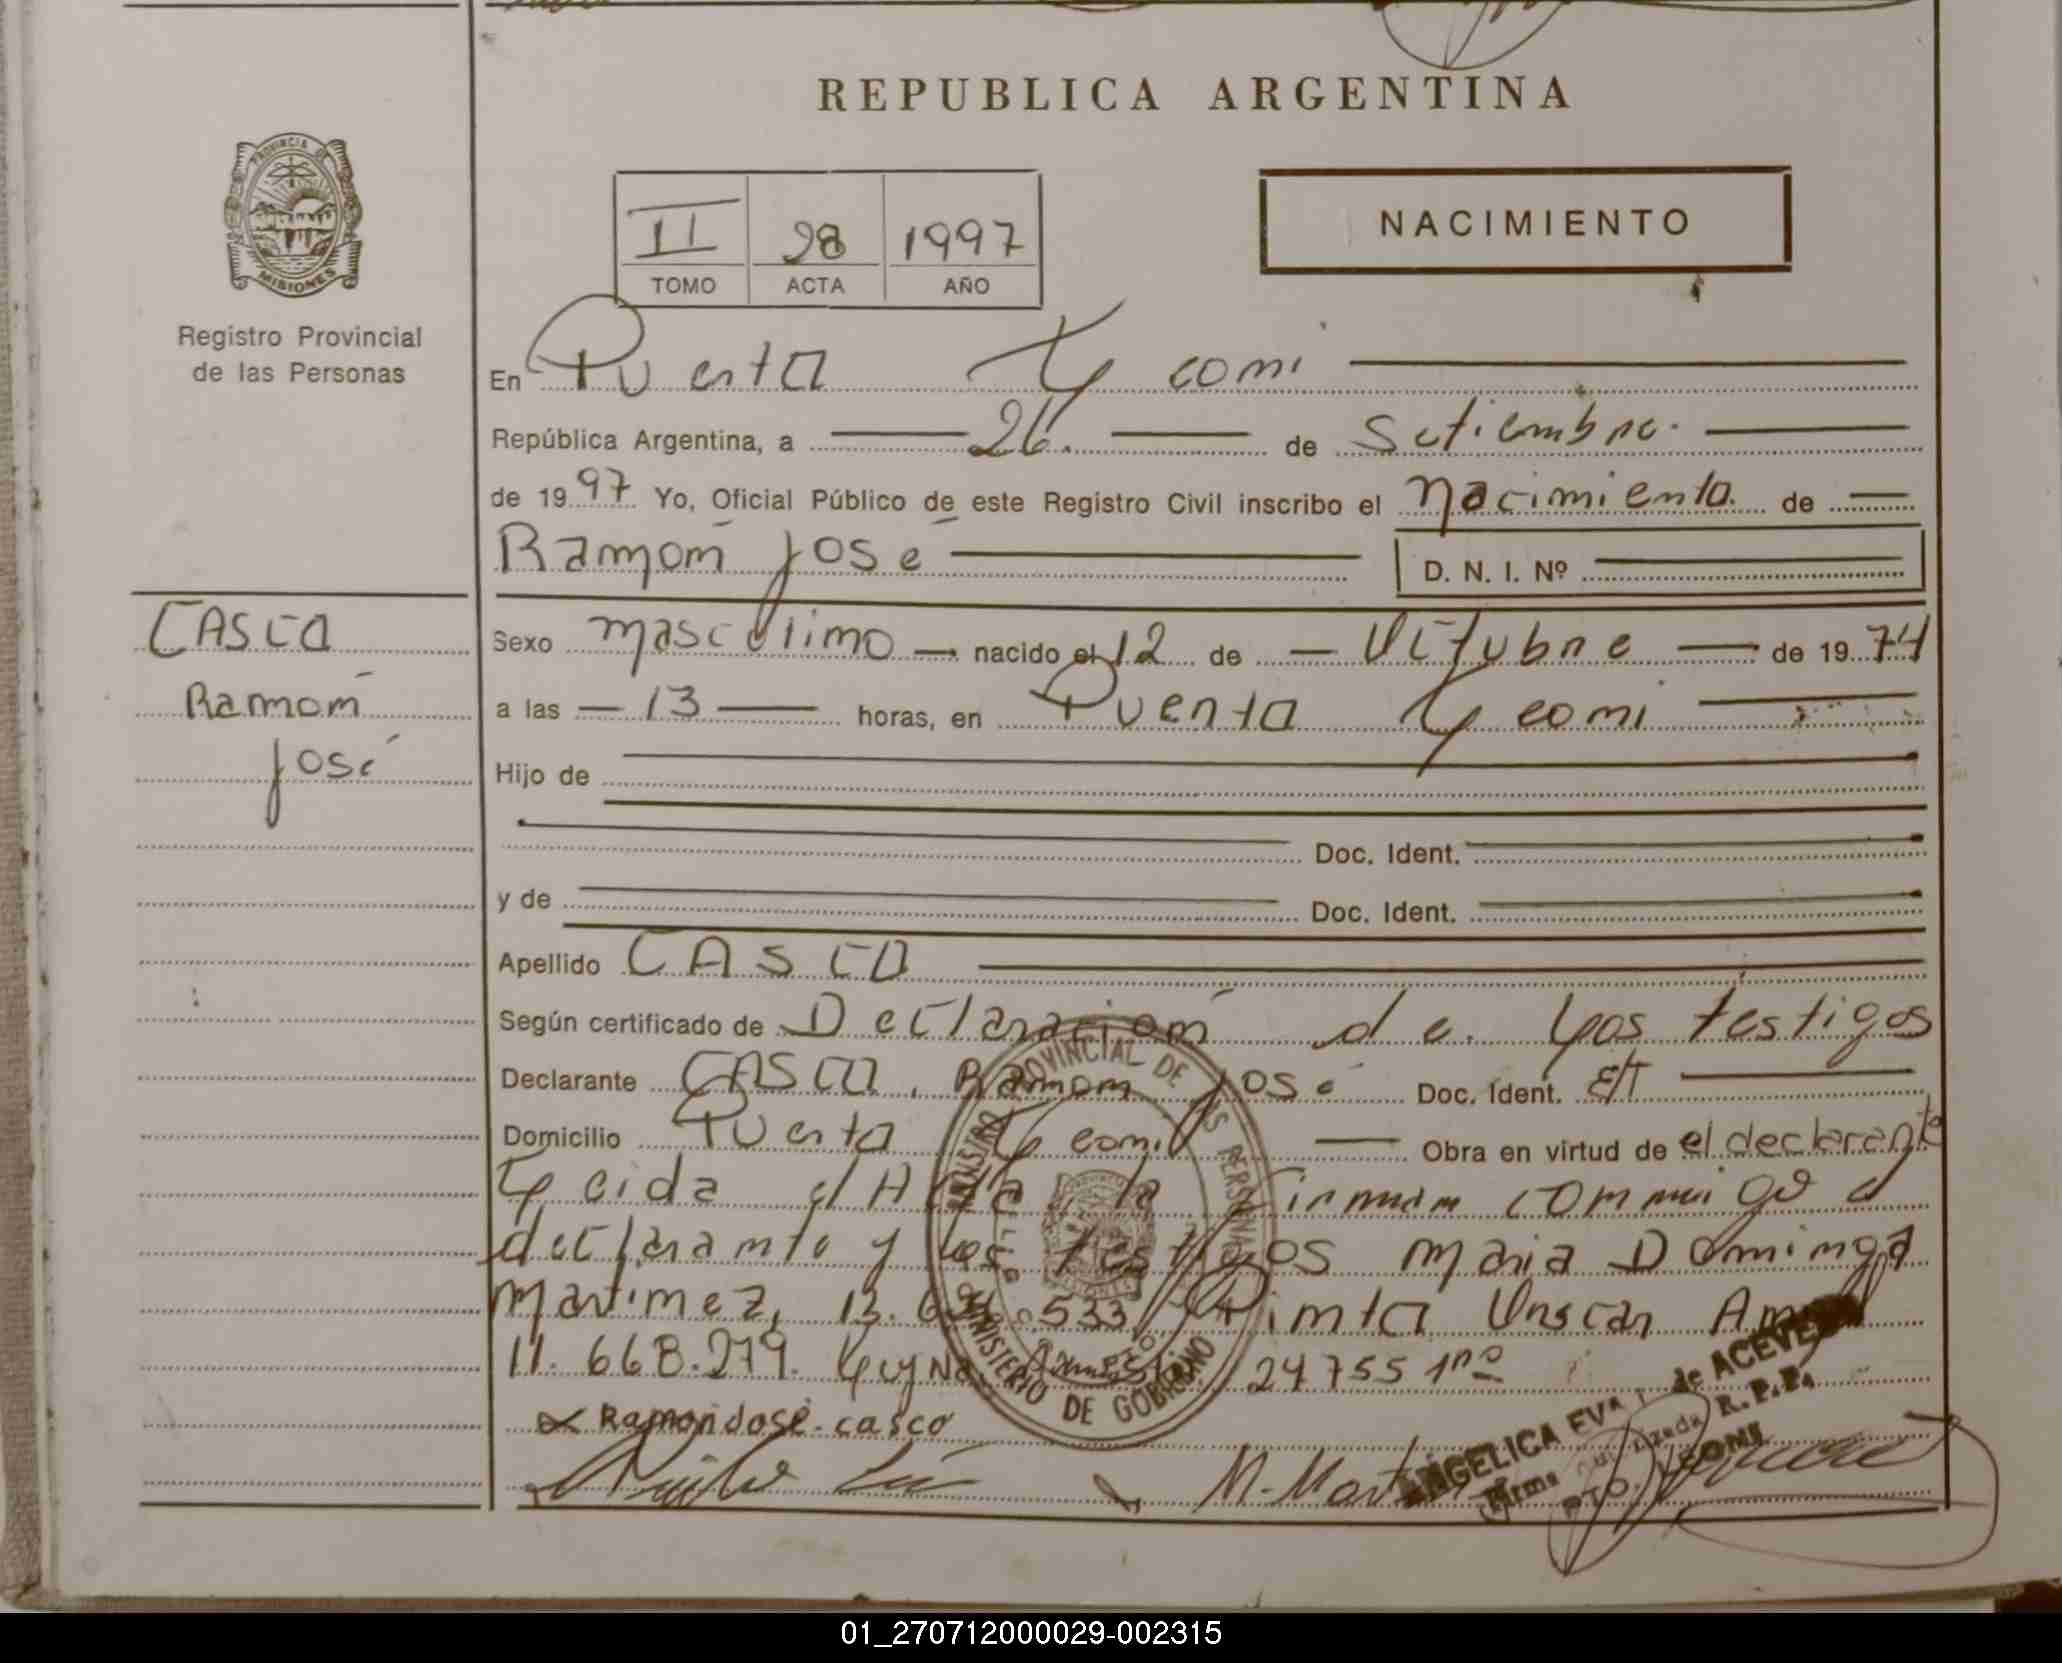 REPUBLICA ARGENTINA
PROVINCIA DE
MISIONES
Registro Provincial
de las Personas
II 28 1997
TOMO ACTA AÑO
NACIMIENTO
En Puerto Leoni
República Argentina, a 26 de Setiembre.
de 1997 Yo, Oficial Público de este Registro Civil inscribo el Nacimiento de
Ramón José D. N. I. Nº
CASCO
Ramón
José
Sexo masculino nacido el 12 de Octubre de 1974
a las 13 horas, en Puerto Leoni
Hijo de
Doc. Ident.
y de Doc. Ident.
Apellido CASCO
Según certificado de Declaración de Los testigos
Declarante CASCO, Ramon José Doc. Ident. E/T
Domicilio Puerto Leoni Obra en virtud de el declarante
Leida el Acta la Firman conmigo el
declarante y los testigos Maria Dominga
Martinez, 13. 533 Pinto Oscar
11.668.279. 24755 1no
Ramon José Casco
M. Mart
PROVINCIAL DE LAS PERSONAS
MINISTERIO DE GOBIERNO
ANGELICA EVA de ACEVEDO
Firma Autorizada R.P.P.
PTO. LEONI
01_270712000029-002315